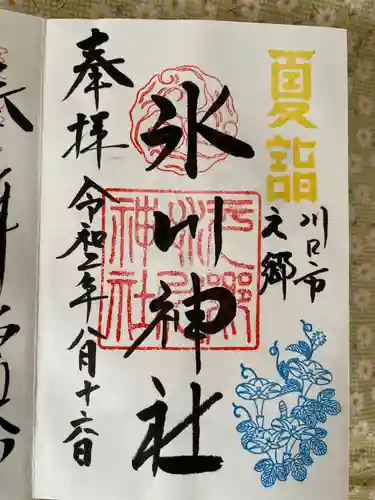 夏詣
川口市
元郷
氷川神社
奉拝
令和二年八月十六日
元郷
氷川
神社